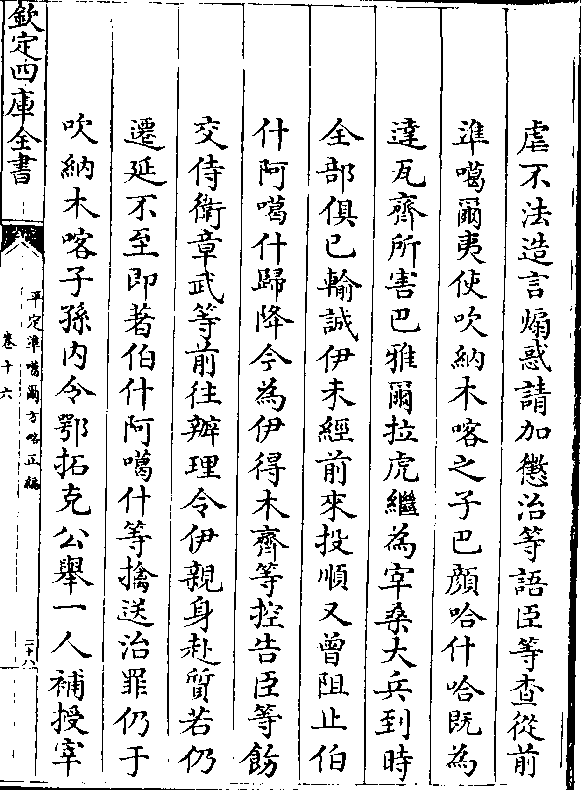 虐不法造言煽惑請加懲治等語臣等查從前
準噶爾夷使吹納木喀之子巴顔哈什哈既為
達瓦齊所害巴雅爾拉虎繼為宰桑大兵到時
全部俱已輸誠伊未經前來投順又曾阻止伯
什阿噶什歸降今為伊得木齊等控告臣等飭
交侍衛章武等前往辦理令伊親身赴質若仍
遷延不至即著伯什阿噶什等擒送治罪仍于
吹納木喀子孫内令鄂拓克公舉一人補授宰
欽定四庫全書
平定準噶爾方略正編
卷十六
二十八